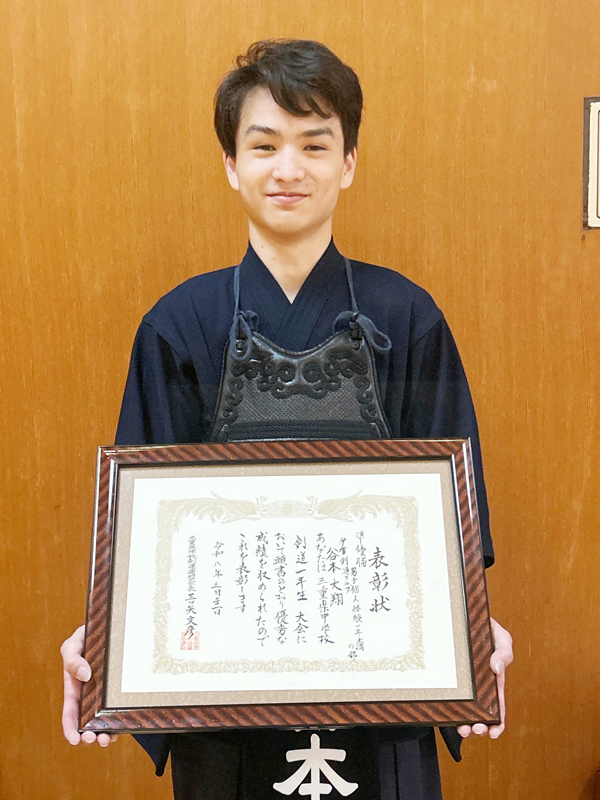 表彰状
準優勝
男子個人経験一年未満の部
伊賀剣道クラブ
谷本 大翔
あなたは三重県中学校
剣道一年生大会に
おいて頭書のとおり優秀な
成績を収められたので
これを表彰します
令和八年
本